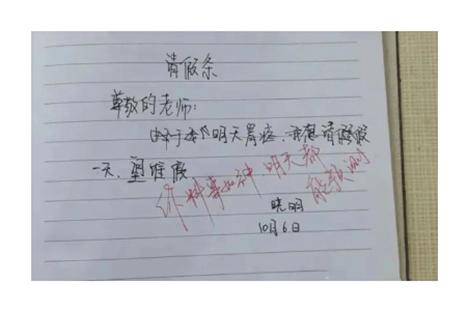 请假条
尊敬的老师:
由于我明天胃疼,我想请假
一天,望准假
你料事如神,明天都
能预测
晓明
10月6日